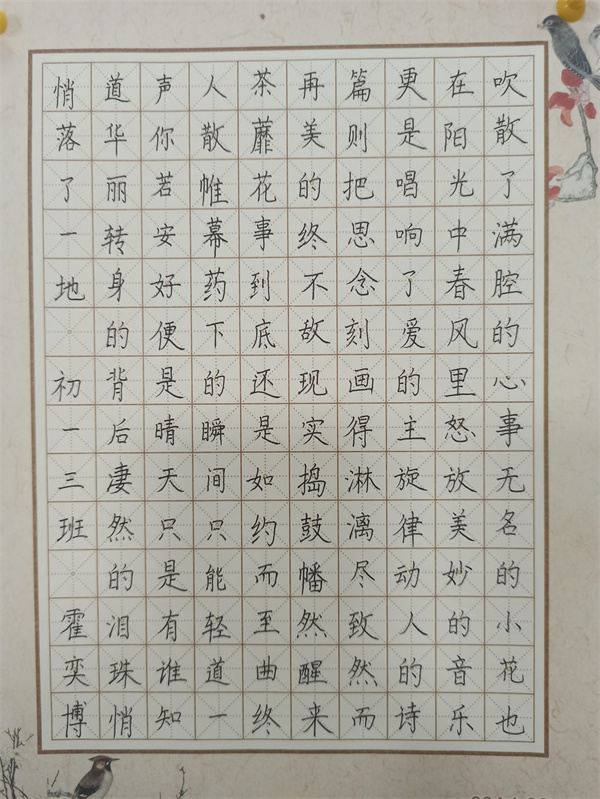 吹散了满腔的心事无名的小花也
在阳光中春风里怒放美妙的音乐
更是唱响了爱的主旋律动人的诗
篇则把思念刻画得淋漓尽致然而
再美的终不敌现实捣鼓幡然醒来
茶蘼花事到底还是如约而至曲终
人散帷幕药下的瞬间只能轻道一
声你若安好便是晴天只是有谁知
道华丽转身的背后凄然的泪珠悄
悄落了一地 初一三班 霍奕博